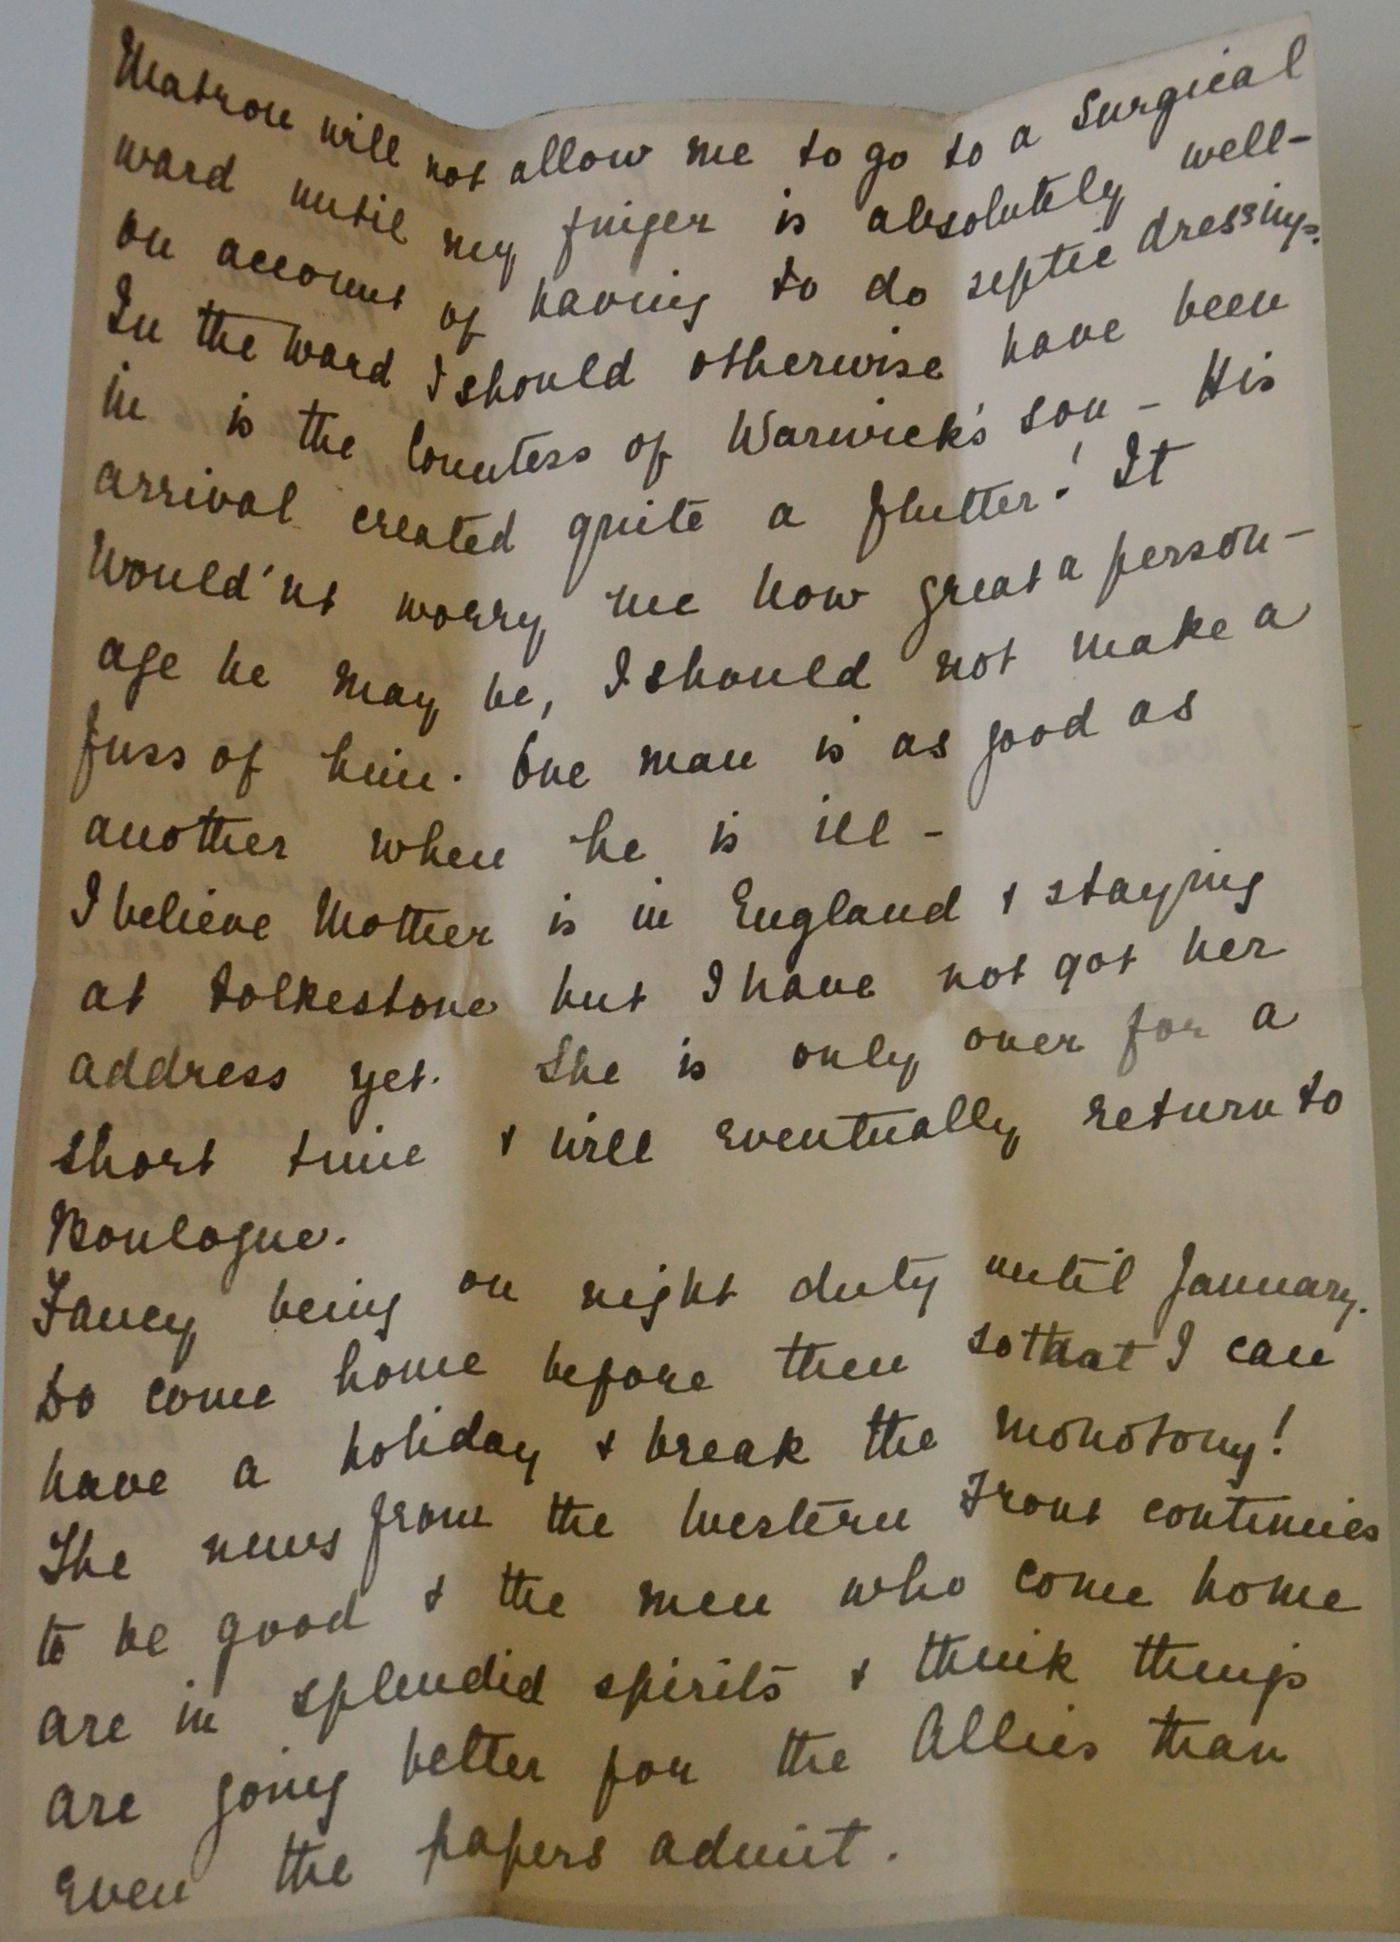 Matron will not allow me to go to a Surgical
ward until my finger is absolutely well-
on account of having to do septic dressings.
In the ward I should otherwise have been
in is the Countess of Warwick's son - His
arrival created quite a flutter! It
Would'nt worry me how great a person-
age he may be, I should not make a
fuss of him. One man is as good as
another when he is ill -
I believe Mother is in England & staying
at Folkestone but I have not got her
address yet. She is only over for a
short time & will eventually return to
Boulogne.
Fancy being on night duty until January.
Do come home before then so that I can
have a holiday & break the monotony!
The news from the Western Front continues
to be good & the men who come home
are in splendid spirits & think things
are going better for the Allies than
even the papers admit.